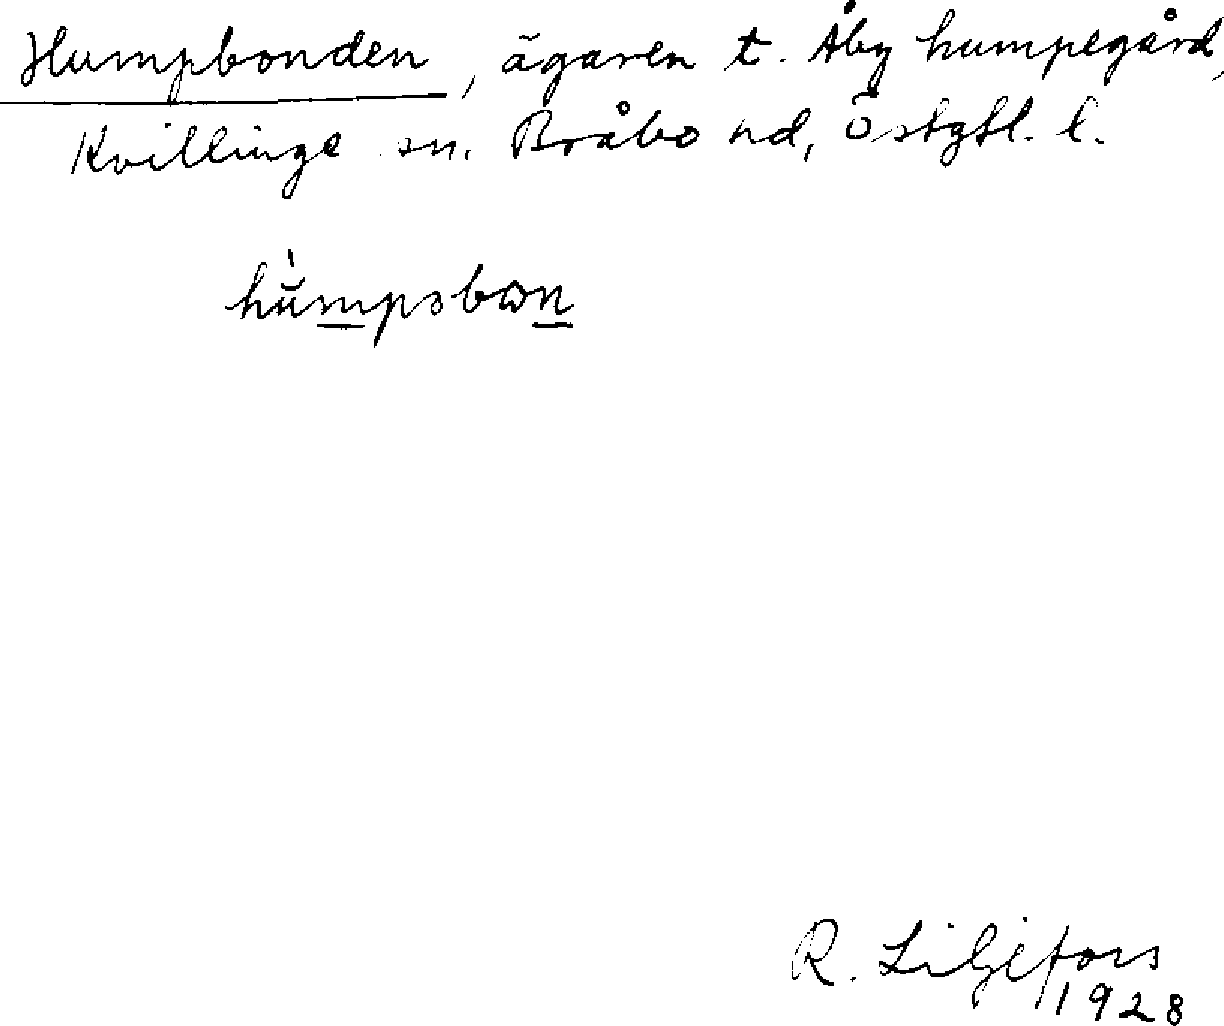 Humpbonden, ägaren t. Åby humpegård,
Kvillinge sn. Bråbo hd, Östgtl. l.
R. Liljefors
1928